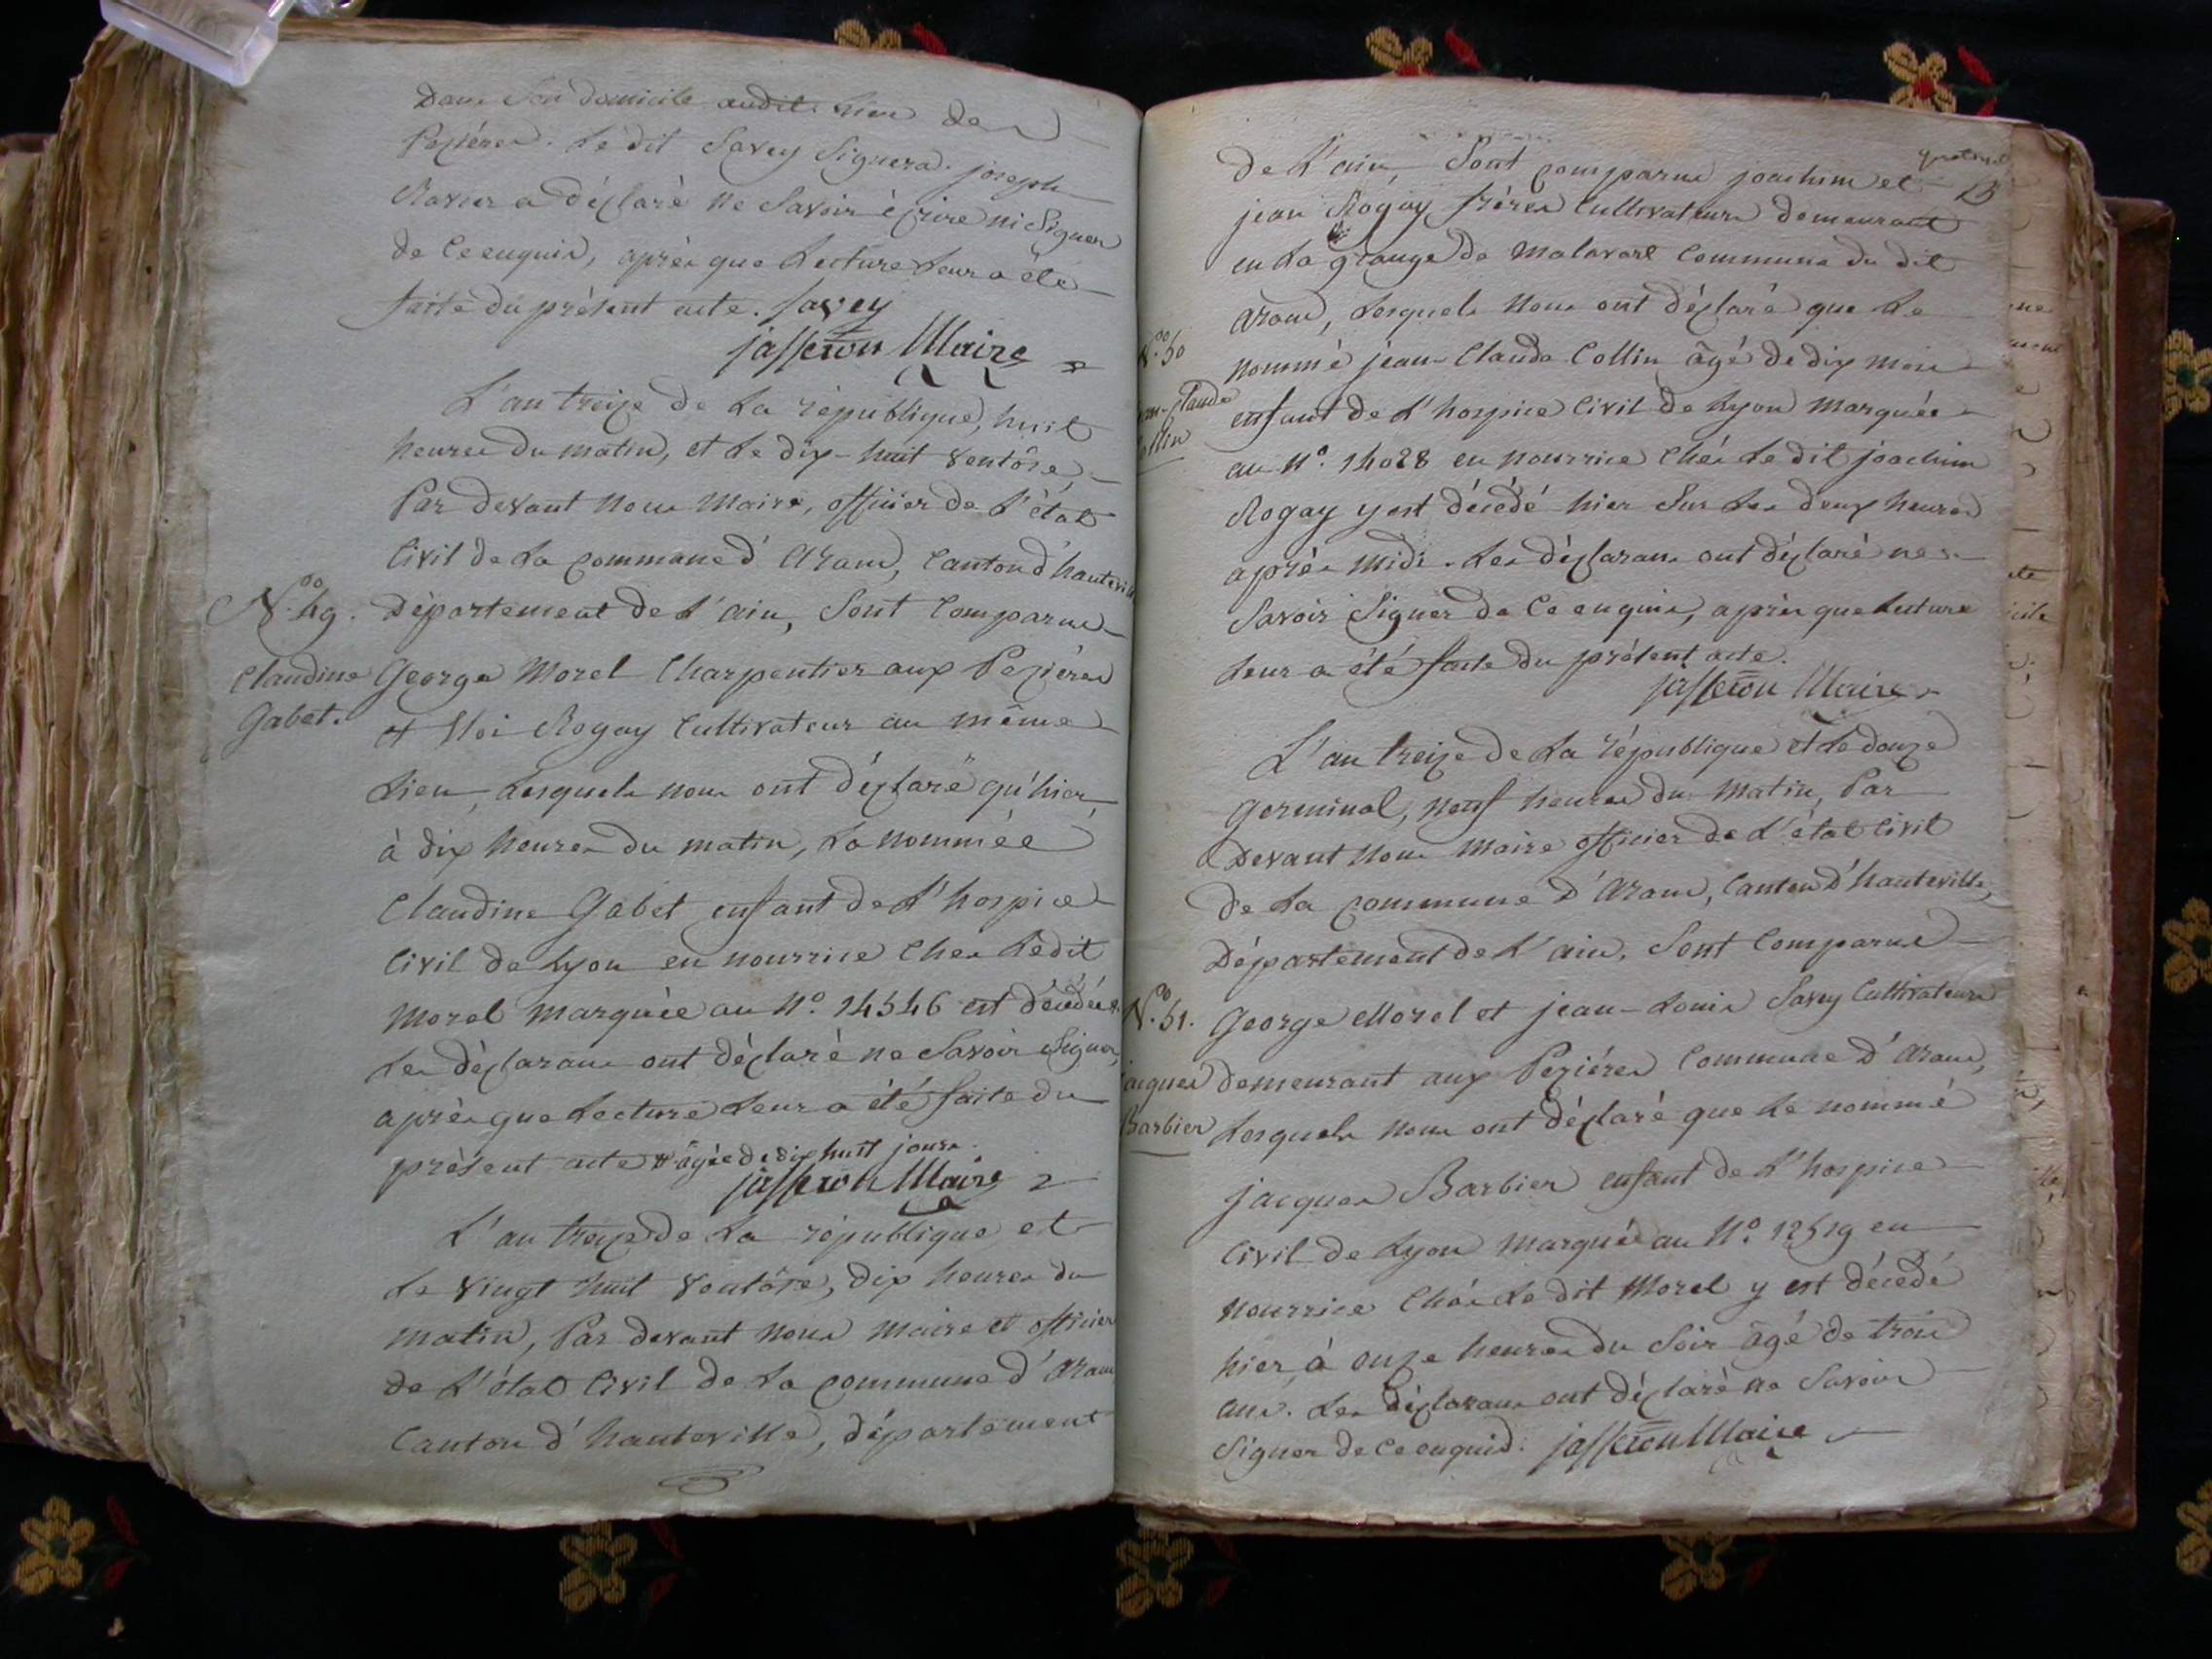 Dans Son domicile audit lieu des
Pezières. Le dit Savey Signera. joseph
Ravier a déclaré ne Savoir écrire ni Signer
de Ce enquis, après que Lecture Leur a été
faite du présent acte. Savey
jasseron Maire
L'an treize de La république, huit
heures du matin, et Le dix-huit Ventôse,
Par devant Nous Maire, officier de L'état
Civil de La Commune d'Aranc, Canton d'hauteville
N.° 49. Département de L'ain, Sont Comparus
Claudine George Morel Charpentier aux Pezières
Gabet. et Rogay Cultivateur au même
Lieu, Lesquels nous ont déclaré qu'hier,
à dix heures du matin, La nommée
Claudine Gabet enfant de L'hospice
Civil de Lyon en nourrice Chés Ledit
Morel Marquée au N.° 14546 est décédée.
Les déclarans ont déclaré ne Savoir Signer,
après que Lecture Leur a été faite du
présent acte # âgée de dix huit jours.
jasseron Maire
L'an treize de La république et
Le Vingt huit Ventôse, dix heures du
Matin, Par devant Nous Maire et officier
de L'état Civil de La Commune d'Aranc
Canton d'hauteville, département
13
de L'ain, Sont comparus joachim et
jean Rogay frères Cultivateurs demeurant
en La grange de Malavard Commune du dit
Aranc, Lesquels Nous ont déclaré que Le
N.° 50 nommé jean-Claude Collin âgé de dix mois
jean-Claude enfant de L'hospice Civil de Lyon Marquée
Collin au N.° 14028 en nourrice Chés Le dit joachim
Rogay y est décédé hier Sur Les deux heures
après midi. Les déclarans ont déclaré ne
Savoir Signer de Ce enquis, après que Lecture
Leur a été faite du présent acte.
jasseron Maire
L'an treize de La république et Le douze
Germinal, neuf heures du Matin, Par
Devant Nous Maire officier de L'état Civil
de La Commune d'Aranc, Canton d'hauteville,
Département de L'ain, Sont Comparus
N.° 51. George Morel et jean-Louis Savey Cultivateurs
jacques demeurant aux Pezières Commune d'Aranc,
Barbier Lesquels nous ont déclaré que Le nommé
jacques Barbier enfant de L'hospice
Civil de Lyon Marqué au N.° 12519 en
nourrice Chés Le dit Morel y est décédé
hier, à onze heures du Soir âgé de trois
ans. Les déclarans ont déclaré ne Savoir
Signer de Ce enquis. jasseron Maire